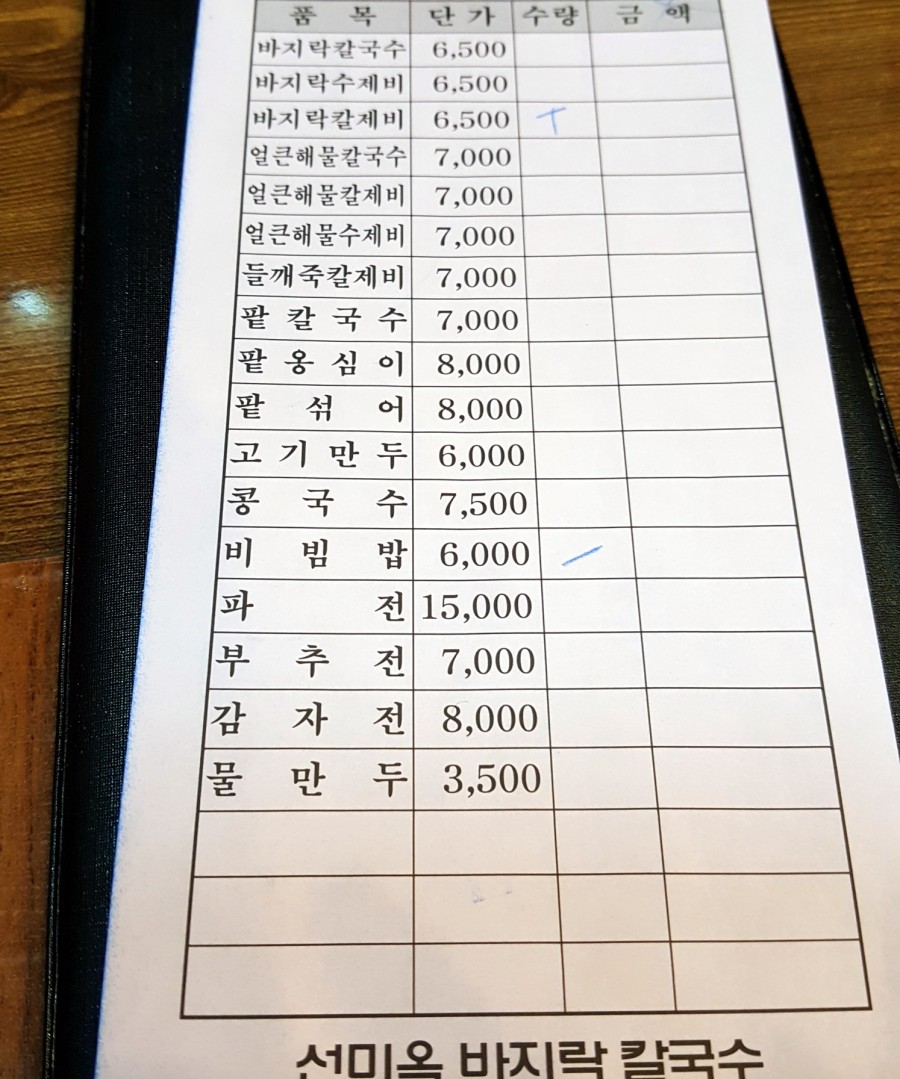 품 목 단 가 수량 금 액
바지락칼국수 6,500
바지락수제비 6,500
바지락칼제비 6,500 ㅜ
얼큰해물칼국수 7,000
얼큰해물칼제비 7,000
얼큰해물수제비 7,000
들깨죽칼제비 7,000
팥 칼 국 수 7,000
팥 옹 심 이 8,000
팥 섞 어 8,000
고 기 만 두 6,000
콩 국 수 7,500
비 빔 밥 6,000
파 전 15,000
부 추 전 7,000
감 자 전 8,000
물 만 두 3,500
선미옥 바지락 칼국수